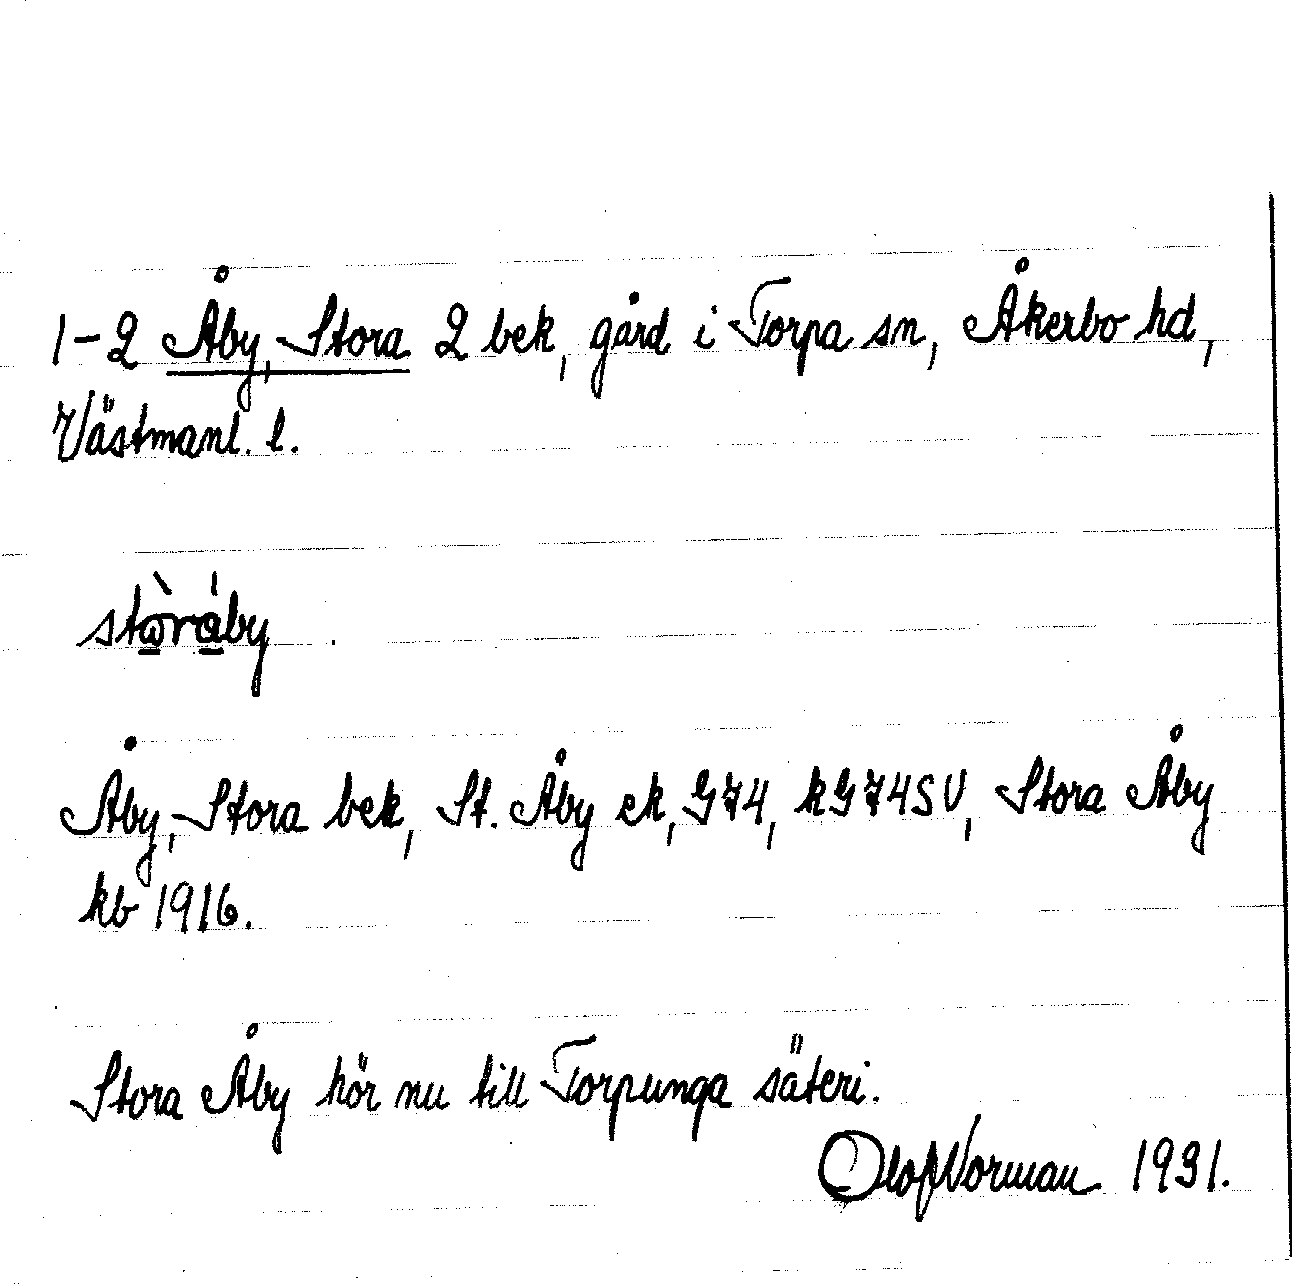 1-2 Åby, Stora 2 bek, gård i Torpa sn, Åkerbo hd,
Västmanl. l.
stòráby
Åby, Stora bek, St. Åby ek, G74, kG74SV, Stora Åby
kb 1916.
Stora Åby hör nu till Torpunga säteri.
Olof Norman 1931.